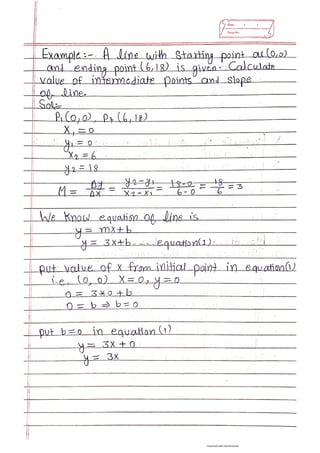 Date
Page No.
Example:- A line with Starting point as (0,0)
and ending point (6,18) is given. Calculate
value of intermediate points and slope
of line.
Sol:-
P₁ (0,0), P₂ (6,18)
X₁ = 0
y₁ = 0
X₂ = 6
y₂ = 18
M = Δy/ΔX = y₂-y₁/X₂-X₁ = 18-0/6-0 = 18/6 = 3
We know equation of line is
y = mx+b
y = 3x+b ----- equation(1).
put value of x from initial point in equation(1)
i.e. (0, 0) X=0, y=0
0 = 3*0+b
0 = b ⇒ b=0
put b=0 in equation (1)
y = 3X + 0
y = 3X
Scanned with CamScanner